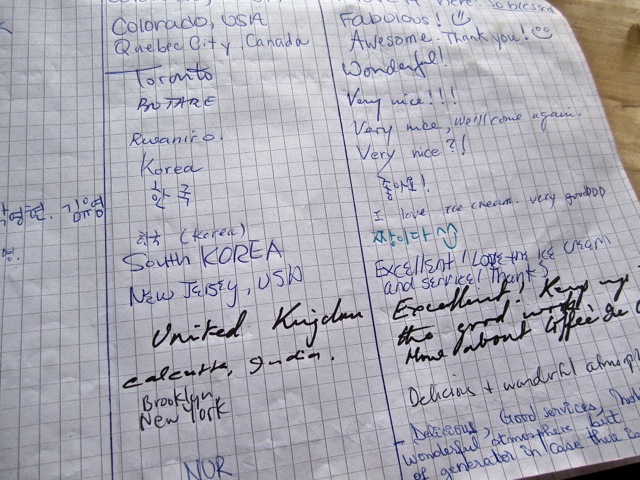 Colorado, USA
Quebec City Canada
Toronto
BUTARE
Korea
한국
한국 (Korea)
South KOREA
New Jersey, USA
United Kingdom
calcutta, India.
Brooklyn
New York
NUR
Here! So blessed
Fabulous! ☺
Awesome. Thank you! ☺
Wonderful!
Very nice!!!
Very nice, we'll come again.
Very nice?!
좋아요!
I love ice cream. very goodDDD
짱이다
Excellent! Love the ice cream
and service! Thanks
Excellent! Keep up
the good work
How about Coffee Ice C
Delicious + wonderful atmosph
- Delicious, Good services,
wonderful atmosphere but
of generator in case there